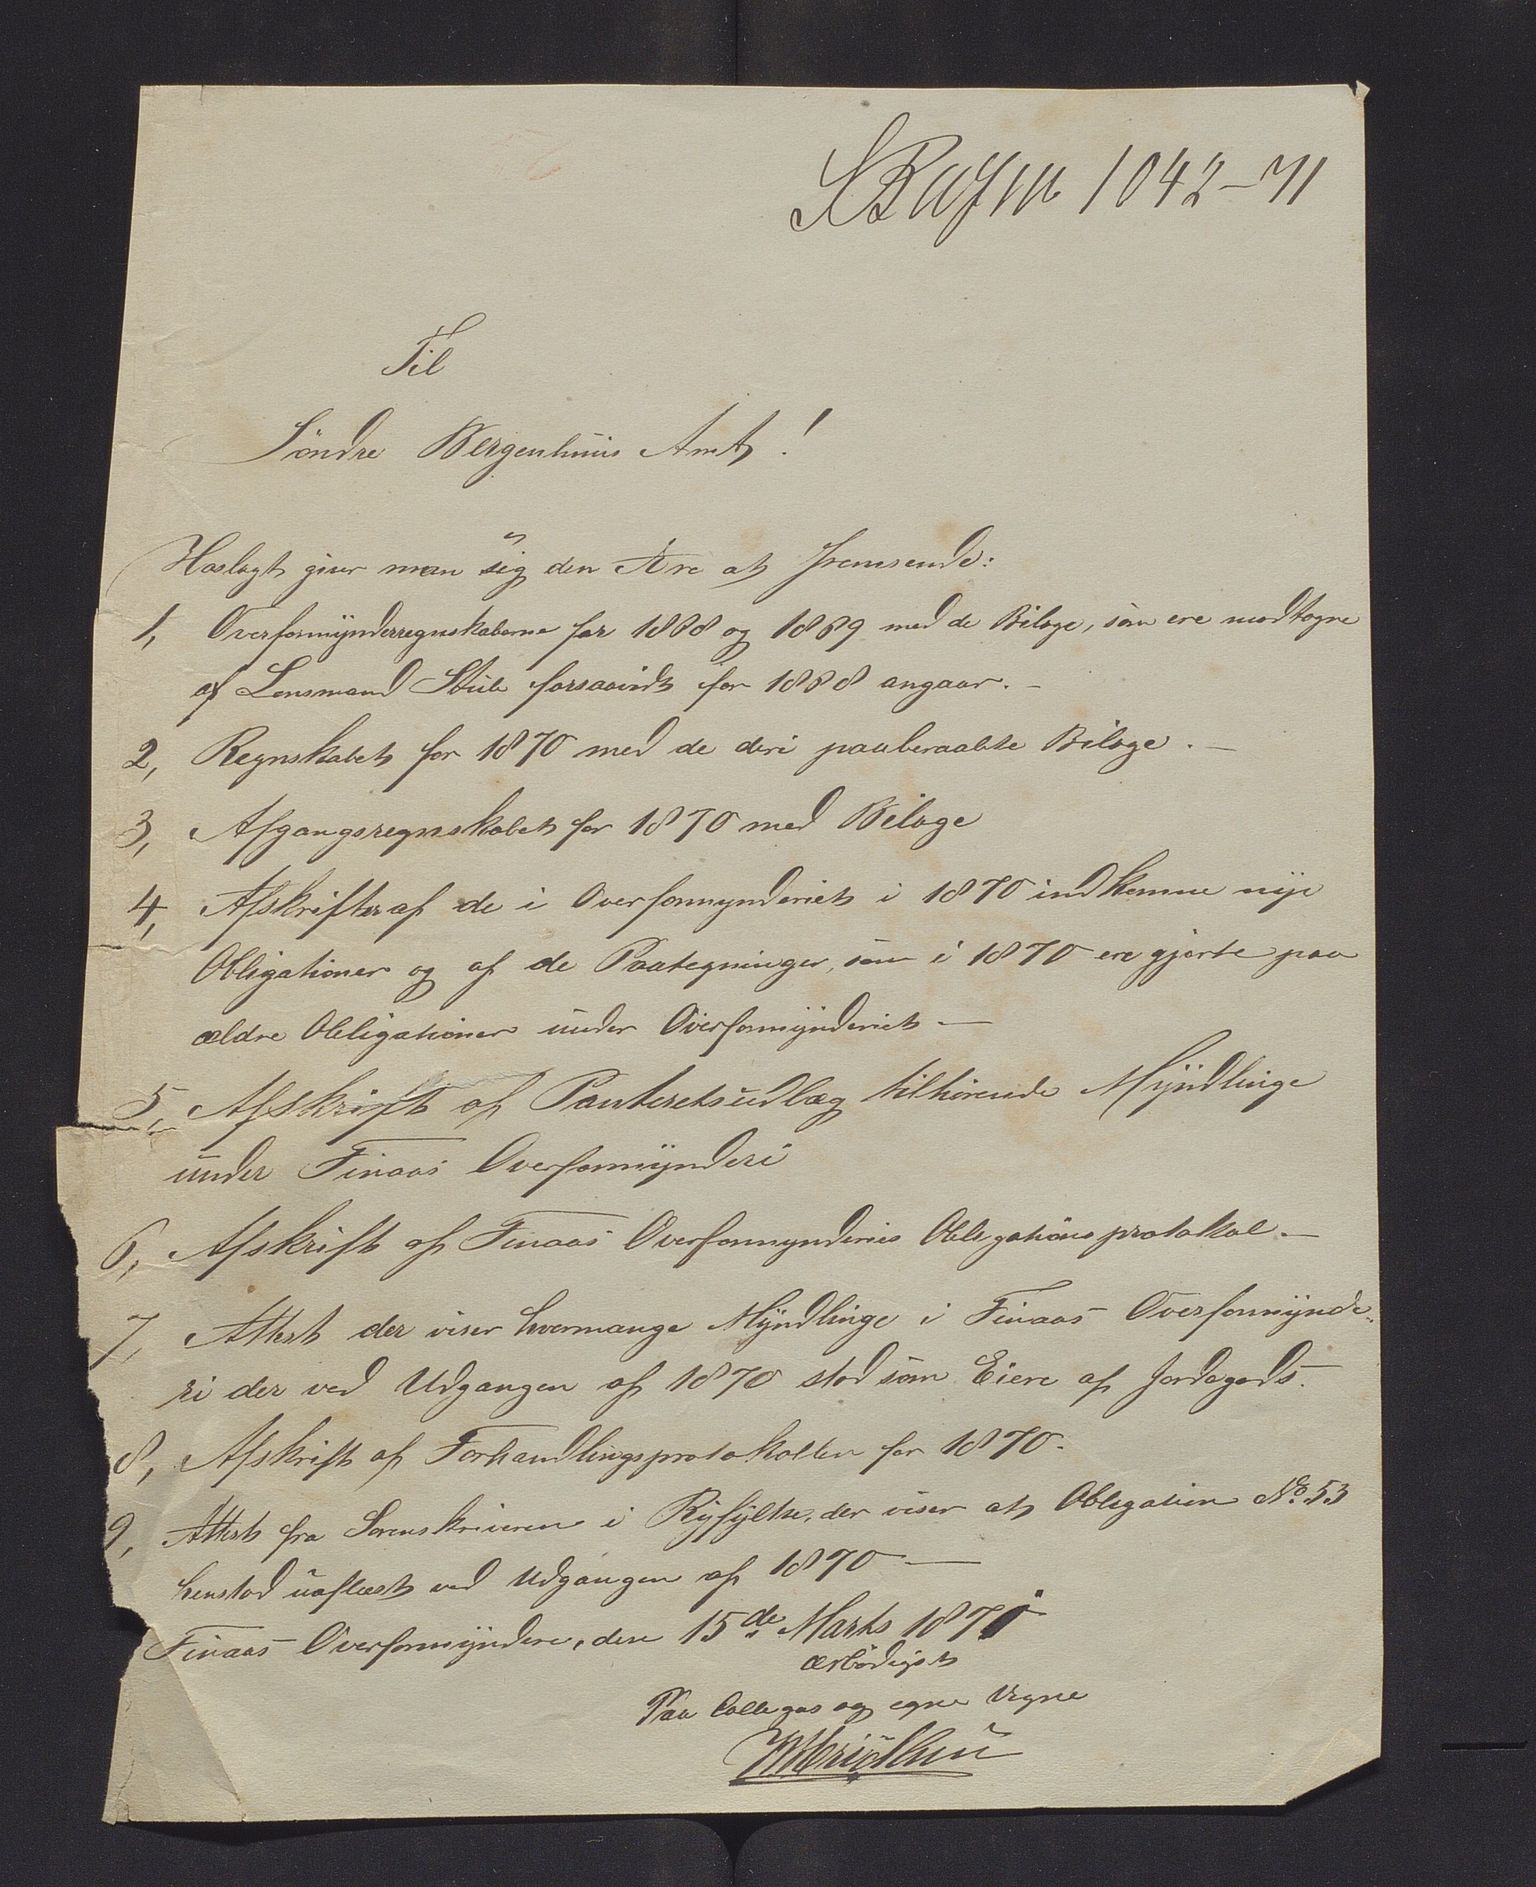 1042-71
Til
Søndre Bergenhuus Amt!
Hoslagt giver man sig den Ære at fremsende:
1, Overformynderregnskaberne for 1868 og 1869 med de Bilage, som ere modtagne
af Lensmand for saavidt for 1868 angaar. -
2, Regnskabet for 1870 med de deri paaberaabte Bilage. -
3, Afgangsregnskabet for 1870 med Bilage
4, Afskrifter af de i Overformynderiet i 1870 indkomne nye
Obligationer og af de Paategninger, som i 1870 ere gjorte paa
ældre Obligationer under Overformynderiet -
5, Afskrift af Panteretsudlæg tilhørende Myndlinge
under Finaas Overformynderi
6, Afskrift af Finaas Overformynderies Obligationsprotokol. -
7, Attest der viser hvormange Myndlinge i Finaas Overformynde-
ri der ved Udgangen af 1870 stod som Eiere af Jordegods.
8, Afskrift af Forhandlingsprotokollen for 1870.
9, Attest fra Sorenskriveren i Ryfylke, der viser at Obligation No. 53
henstod uaflæst ved Udgangen af 1870 -
Finaas Overformyndere, den 15de Marts 1871
ærbødigst
Paa Collegas og egne Vegne